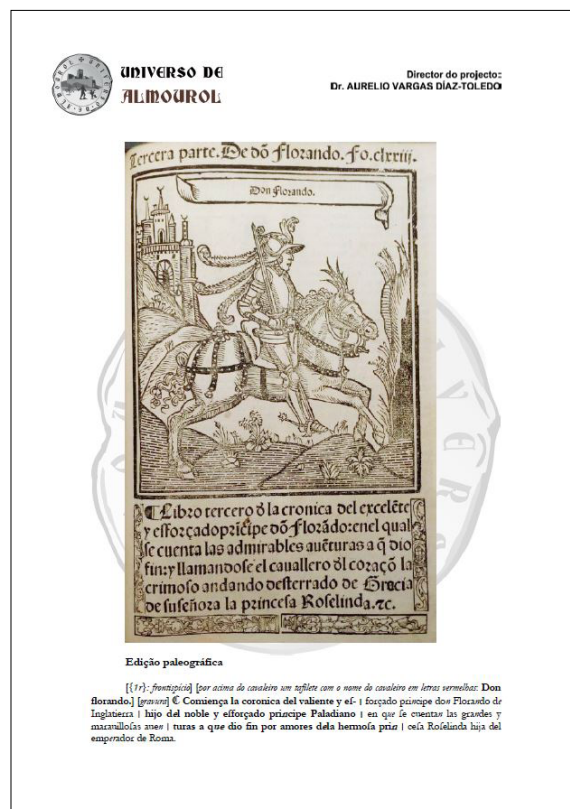 UNIVERSO DE
ALMOUROL
Director do projecto:
Dr. AURELIO VARGAS DÍAZ-TOLEDO
Tercera parte. De dō Florando. Fo. clxxiij.
Don Florando.
❡ Libro tercero ꝺ la cronica del excelēte
y eſforçado prīcipe dō Florādo: en el qual
ſe cuenta las admirables auēturas a q̄ dio
fin: y llamandoſe el cauallero ꝺl coraçō la
crimoso andando deſterrado de Grecia
de ſu ſeñora la princeſa Roſelinda. ⁊c.
Edição paleográfica
[{1r}: frontispício] [por acima do cavaleiro um tafilete com o nome do cavaleiro em letras vermelhas: Don
florando.] [gravura] ❡ Comiença la coronica del valiente y eſ- | forçado principe don Florando de
Inglatierra | hijo del noble y eſſorçado principe Paladiano | en que ſe cuentan las grandes y
marauilloſas auen | turas a que dio fin por amores dela hermoſa prin | ceſa Roſelinda hija del
emperador de Roma.